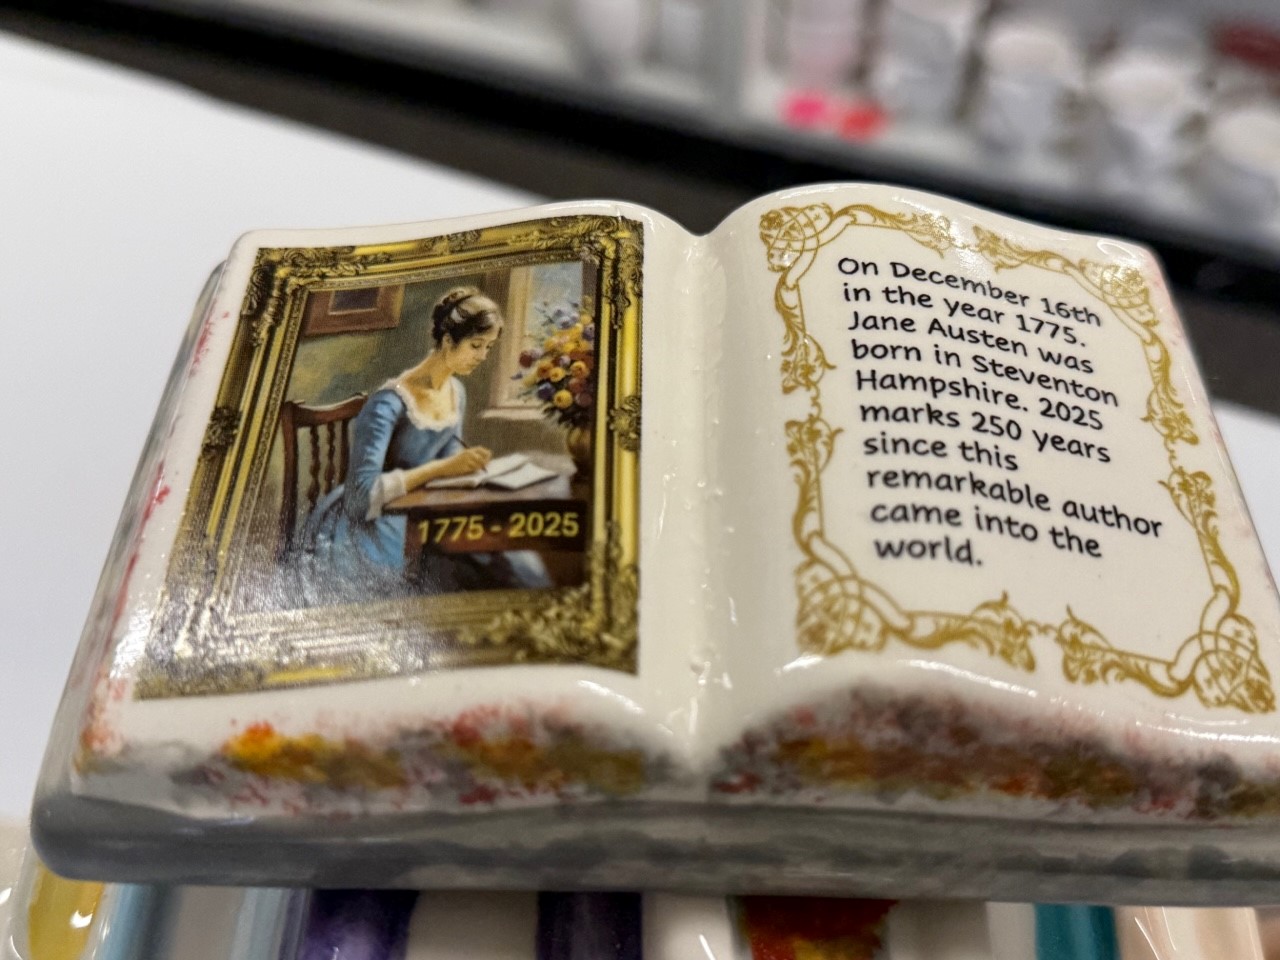 1775 - 2025
On December 16th
in the year 1775.
Jane Austen was
born in Steventon
Hampshire. 2025
marks 250 years
since this
remarkable author
came into the
world.